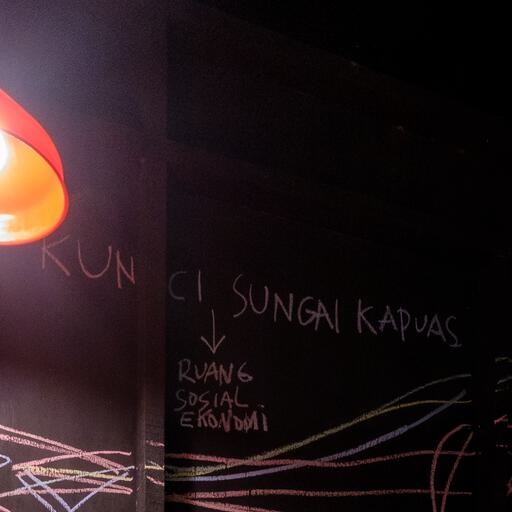 KUNCI SUNGAI KAPUAS
RUANG
SOSIAL
EKONOMI